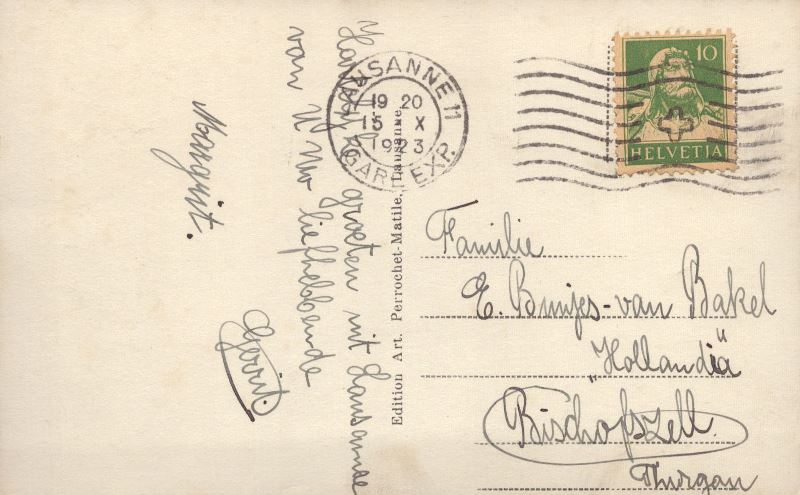 Hartelijke groeten uit Lausanne
van Uw No liefhebbende
Gerrit.
Margrit.
Edition Art. Perrochet-Matile, Lausanne
LAUSANNE 11
19 20
15 X
1923
GARE EXP.
10
HELVETIA
Familie
E. Bunjes-van Bakel
„Hollandia"
Bischofszell
Thurgau